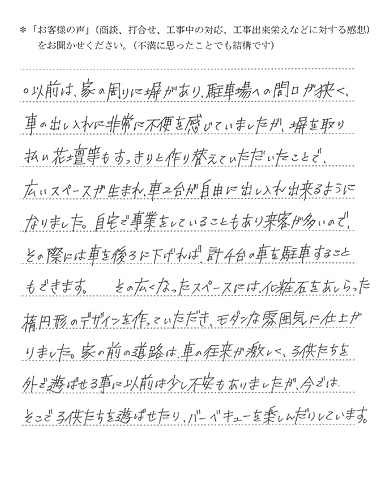 ＊「お客様の声」（商談、打合せ、工事中の対応、工事出来栄えなどに対する感想）
をお聞かせください。（不満に思ったことでも結構です）
○以前は、家の周りに塀があり、駐車場への間口が狭く、
車の出し入れに非常に不便を感じていましたが、塀を取り
払い花壇等もすっきりと作り替えていただいたことで、
広いスペースが生まれ、車2台が自由に出し入れ出来るように
なりました。自宅で事業をしていることもあり来客が多いので、
その際には車を後ろに下げれば、計4台の車を駐車すること
もできます。 その広くなったスペースには、化粧石をあしらった
楕円形のデザインを作っていただき、モダンな雰囲気に仕上が
りました。家の前の道路は、車の往来が激しく、子供たちを
外で遊ばせる事に以前は少し不安もありましたが、今では
そこで子供たちを遊ばせたり、バーベキューを楽しんだりしています。